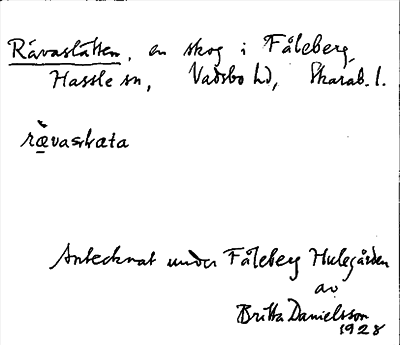 Rävaslätten, en skog i Fåleberg,
Hassle sn, Vadsbo hd, Skarab. l.
rävaslæta
Antecknat under Fåleberg Hulegården
av
Britta Danielsson
1928